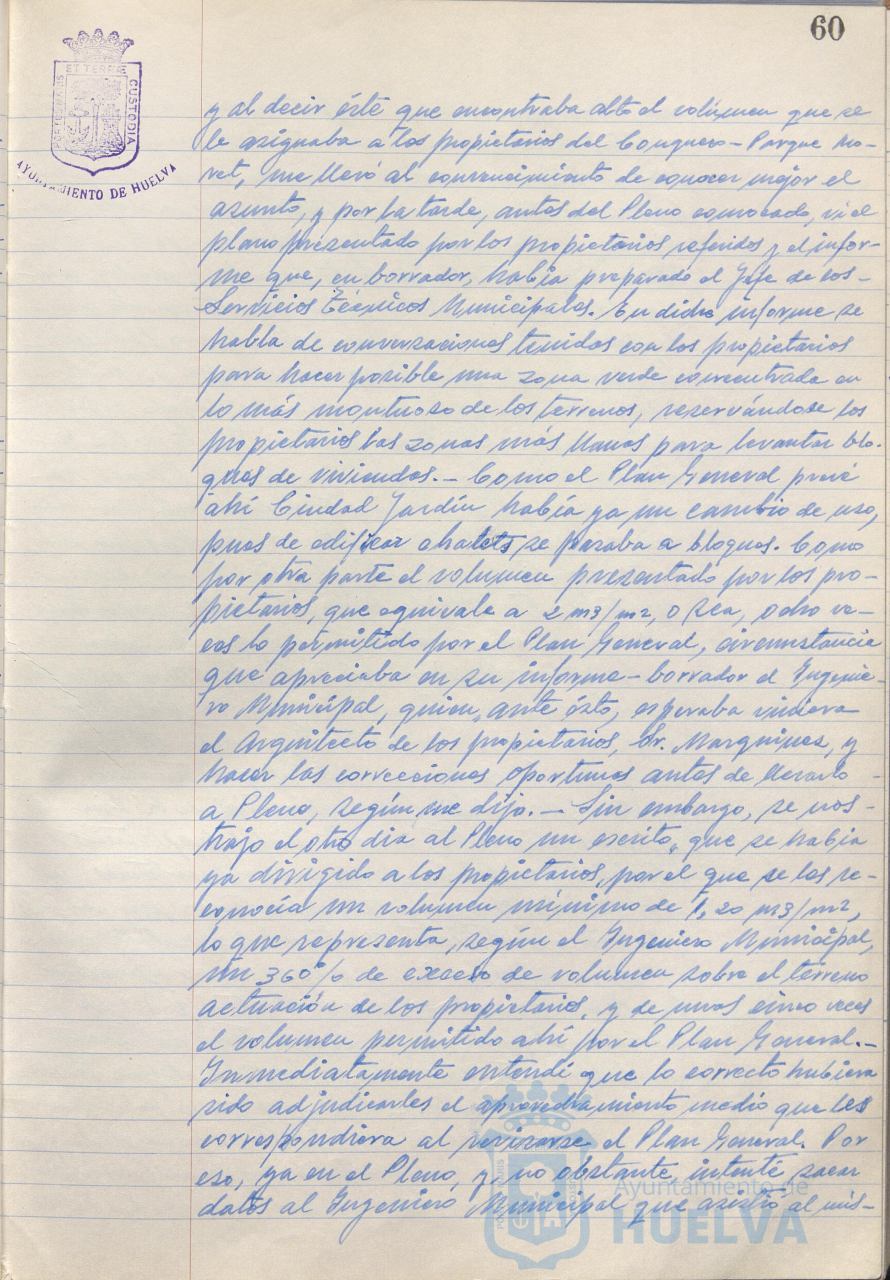 60
PORTUS MARIS ET TERRAE CUSTODIA
AYUNTAMIENTO DE HUELVA
y al decir éste que encontraba alto el volúmen que se
le asignaba a los propietarios del Conquero - Parque Mo-
ret, me llevó al convencimiento de conocer mejor el
asunto, y por la tarde, antes del Pleno convocado, vi el
plano presentado por los propietarios referidos y el infor-
me que, en borrador, había preparado el Jefe de los
Servicios Técnicos Municipales. En dicho informe se
habla de conversaciones tenidas con los propietarios
para hacer posible una zona verde concentrada en
lo más montuoso de los terrenos, reservándose los
propietarios las zonas más llanas para levantar blo-
ques de viviendas. — Como el Plan General prevé
ahí Ciudad Jardín había ya un cambio de uso,
pues de edificar chalets se pasaba a bloques. Como
por otra parte el volumen presentado por los pro-
pietarios, que equivale a 2 m3/m2, o sea, ocho ve-
ces lo permitido por el Plan General, circunstancia
que apreciaba en su informe-borrador el Ingenie-
ro Municipal, quien, ante ésto, esperaba viniera
el Arquitecto de los propietarios, Sr. Marquínez, y
hacer las correcciones oportunas antes de llevarlo
a Pleno, según me dijo. — Sin embargo, se nos
trajo el otro día al Pleno un escrito, que se había
ya dirigido a los propietarios, por el que se les re-
conocía un volumen mínimo de 1,20 m3/m2,
lo que representa, según el Ingeniero Municipal,
un 360% de exceso de volumen sobre el terreno
actuación de los propietarios, y de unas cinco veces
el volumen permitido ahí por el Plan General. —
Inmediatamente entendí que lo correcto hubiera
sido adjudicarles el aprovechamiento medio que les
correspondiera al revisarse el Plan General. Por
eso, ya en el Pleno, y no obstante intenté sacar
datos al Ingeniero Municipal que asistió al mis-
Ayuntamiento de
HUELVA